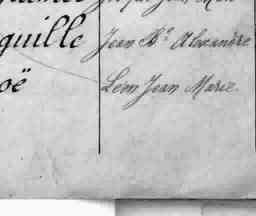 quille Jean Bte Alexandre
oë Léon Jean Marie